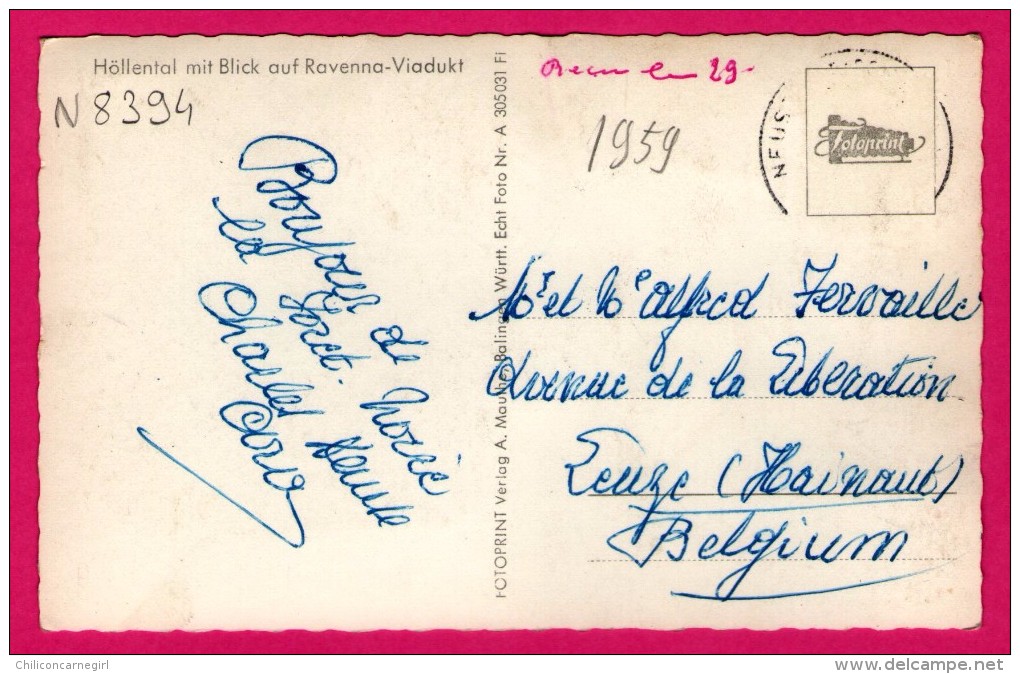 Höllental mit Blick auf Ravenna-Viadukt
N 8394
Bonjour de Noire
Forêt.
Charles
FOTOPRINT Verlag A. Mauthe, Balingen Württ. Echt Foto Nr. A 305031 Fi
29-
1959
NEUS
Fotoprint
Mr et Me Alfred Tervaille
Avenue de la Libération
Leuze (Hainaut)
Belgium
Chiliconcarnegirl
www.delcampe.net